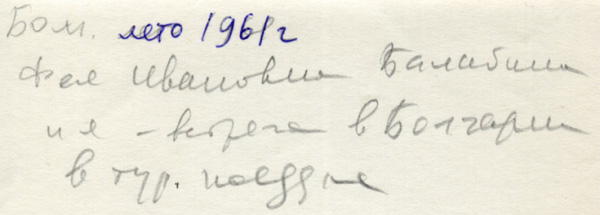 Бол. лето 1961 г
Фея Ивановна Балабина
и я - встреча в Болгарии
в тур. поездке